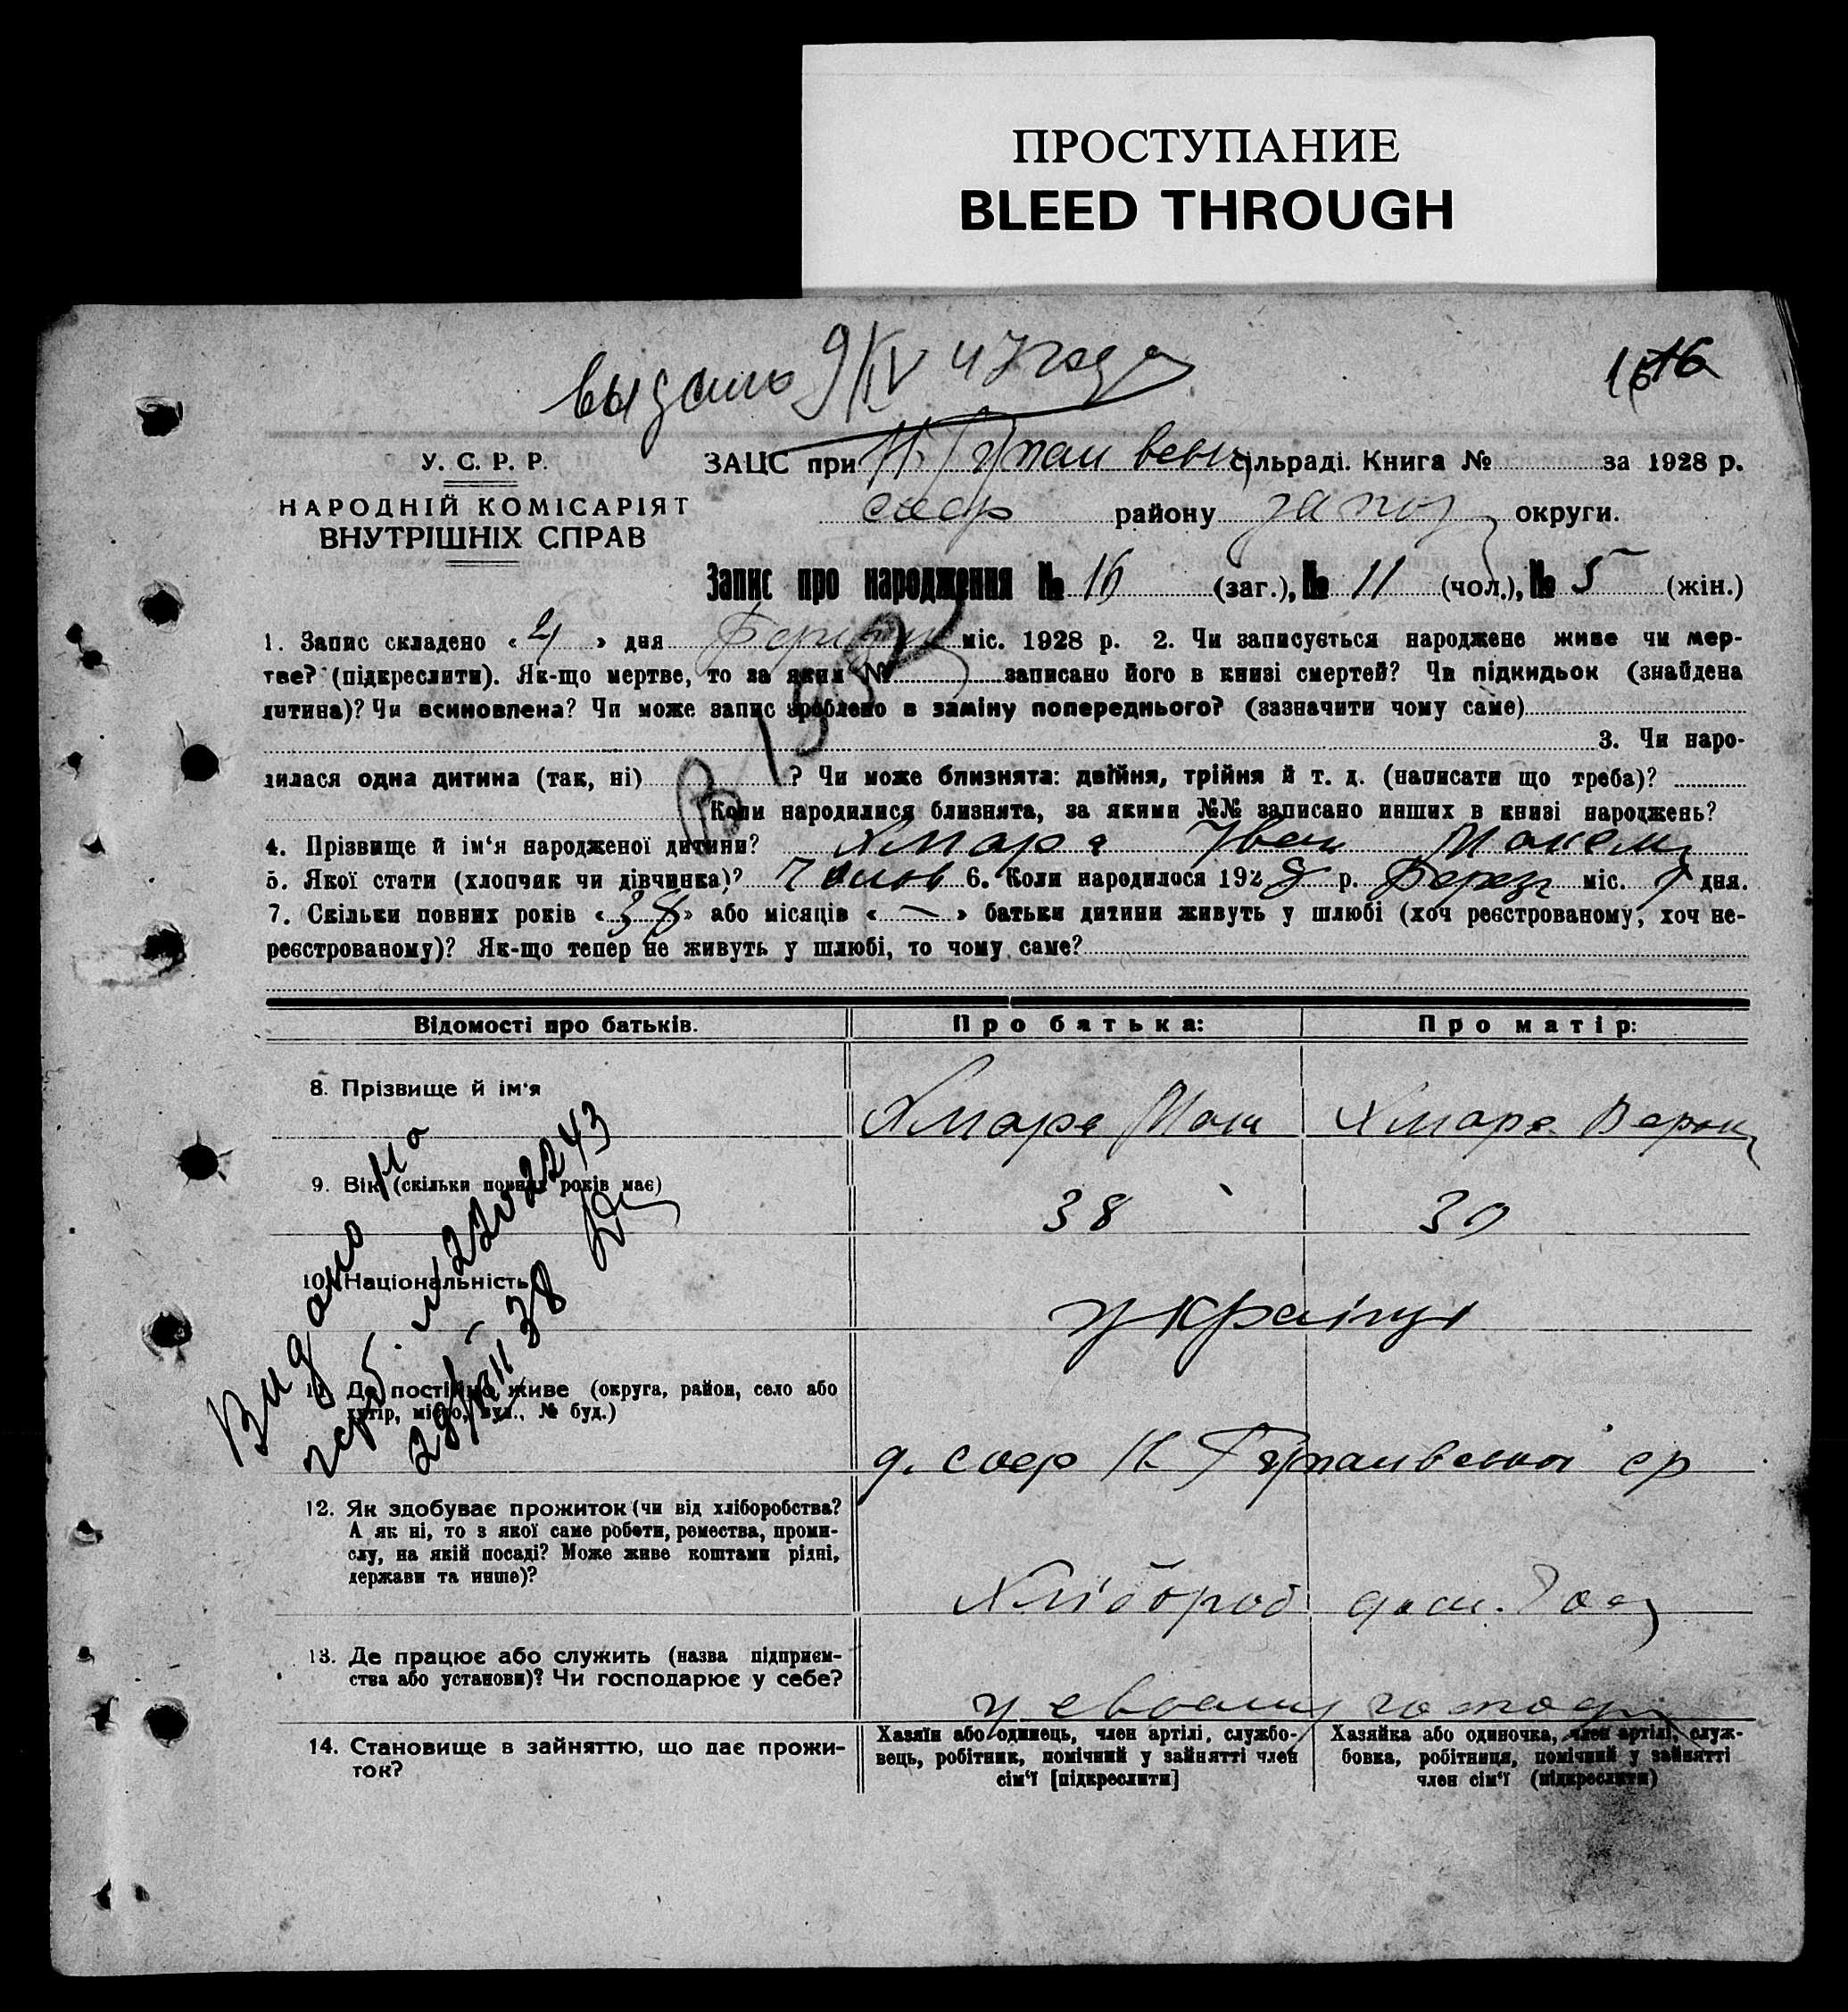 ПРОСТУПАНИЕ
BLEED THROUGH
выдано 9/IV 47 года
16 16
У. С. Р. Р.
НАРОДНІЙ КОМІСАРІЯТ
ВНУТРІШНІХ СПРАВ
ЗАЦС при сільраді. Книга № за 1928 р.
району округи.
Запис про народження № 16 (заг.), № 11 (чол.), № 5 (жін.)
1. Запис складено « » дня міс. 1928 р. 2. Чи записується народжене живе чи мер-
тве? (підкреслити). Як-що мертве, то за яким № записано його в книзі смертей? Чи підкидьок (знайдена
дитина)? Чи всиновлена? Чи може запис зроблено в заміну попереднього? (зазначити чому саме)
3. Чи наро-
дилася одна дитина (так, ні) ? Чи може близнята: двійня, трійня й т. д. (написати що треба)?
Коли народилися близнята, за якими №№ записано инших в книзі народжень?
4. Прізвище й ім'я народженої дитини? Хмара Іван
5. Якої стати (хлопчик чи дівчинка)? Чолов 6. Коли народилося 1928 р. Берез міс. дня.
7. Скільки повних років « » або місяців « — » батьки дитини живуть у шлюбі (хоч реєстрованому, хоч не-
реєстрованому)? Як-що тепер не живуть у шлюбі, то чому саме?
Відомості про батьків. Про батька: Про матір:
8. Прізвище й ім'я Хмара Хмара
9. Вік (скільки повних років має) 38 30
10. Національність українці
11. Де постійно живе (округа, район, село або
хутір, місто, вул., № буд.)
12. Як здобуває прожиток (чи від хліборобства?
А як ні, то з якої саме роботи, ремества, проми-
слу, на якій посаді? Може живе коштами рідні,
держави та инше)?
Хлібороб
13. Де працює або служить (назва підприєм-
ства або установи)? Чи господарює у себе?
у своему господ
14. Становище в зайняттю, що дає прожи-
ток?
Хазяїн або одинець, член артілі, службо-
вець, робітник, помічний у зайнятті член
сім'ї [підкреслити]
Хазяйка або одиночка, член артілі, служ-
бовка, робітниця, помічний у зайнятті
член сім'ї (підкреслити)
Видано